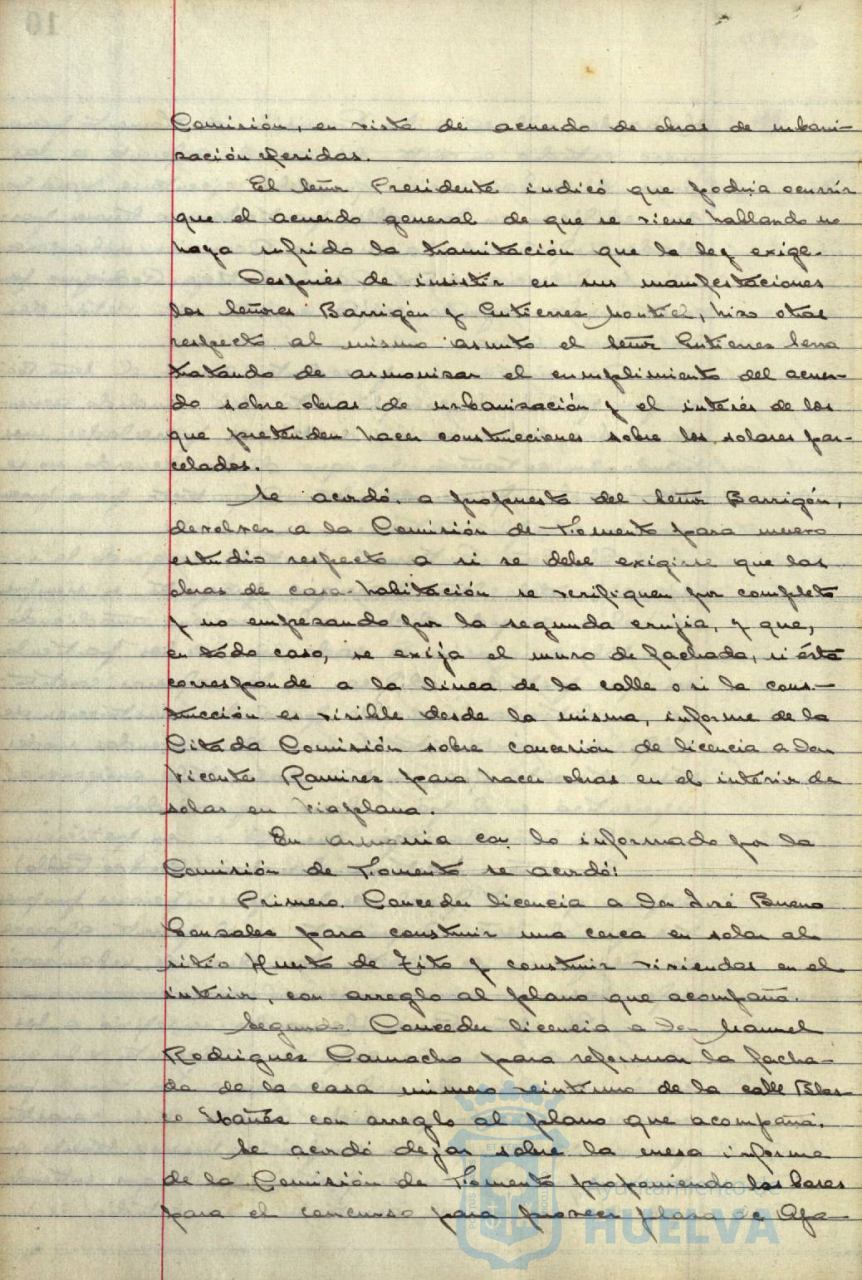 Comisión, en vista de acuerdo de obras de urbani-
zación referidas.
El Señor Presidente indicó que podría ocurrir
que el acuerdo general de que se viene hablando no
haya sufrido la tramitación que la ley exige.
Después de insistir en sus manifestaciones
los Señores Barrigón y Gutierrez Montiel, hizo otras
respecto al mismo asunto el Señor Gutierrez Serra
tratando de armonizar el cumplimiento del acuer-
do sobre obras de urbanización y el interés de los
que pretenden hacer construcciones sobre los solares par-
celados.
Se acordó, a propuesta del Señor Barrigón,
devolver a la Comisión de Fomento para nuevo
estudio respecto a si se debe exigirse que las
obras de casa-habitación se verifiquen por completo
y no empezando por la segunda crujía, y que,
en todo caso, se exija el muro de fachada, si ésta
corresponde a la linea de la calle o si la cons-
trucción es visible desde la misma, informe de la
Citada Comisión sobre concesión de licencia a Don
Vicente Ramirez para hacer obras en el interior de
solar en Viaplana.
En armonia con lo informado por la
Comisión de Fomento se acordó:
Primero. Conceder licencia a Don José Bueno
Gonzales para construir una cerca en solar al
sitio Huerto de Zito y construir viviendas en el
interior, con arreglo al plano que acompaña.
Segundo. Conceder licencia a Don Manuel
Rodriguez Camacho para reformar la facha-
da de la casa número veintiuno de la calle Blas-
co Ibañez con arreglo al plano que acompaña.
Se acordó dejar sobre la mesa informe
de la Comisión de Fomento proponiendo las bases
para el concurso para proveer plaza de
Ayuntamiento de
HUELVA